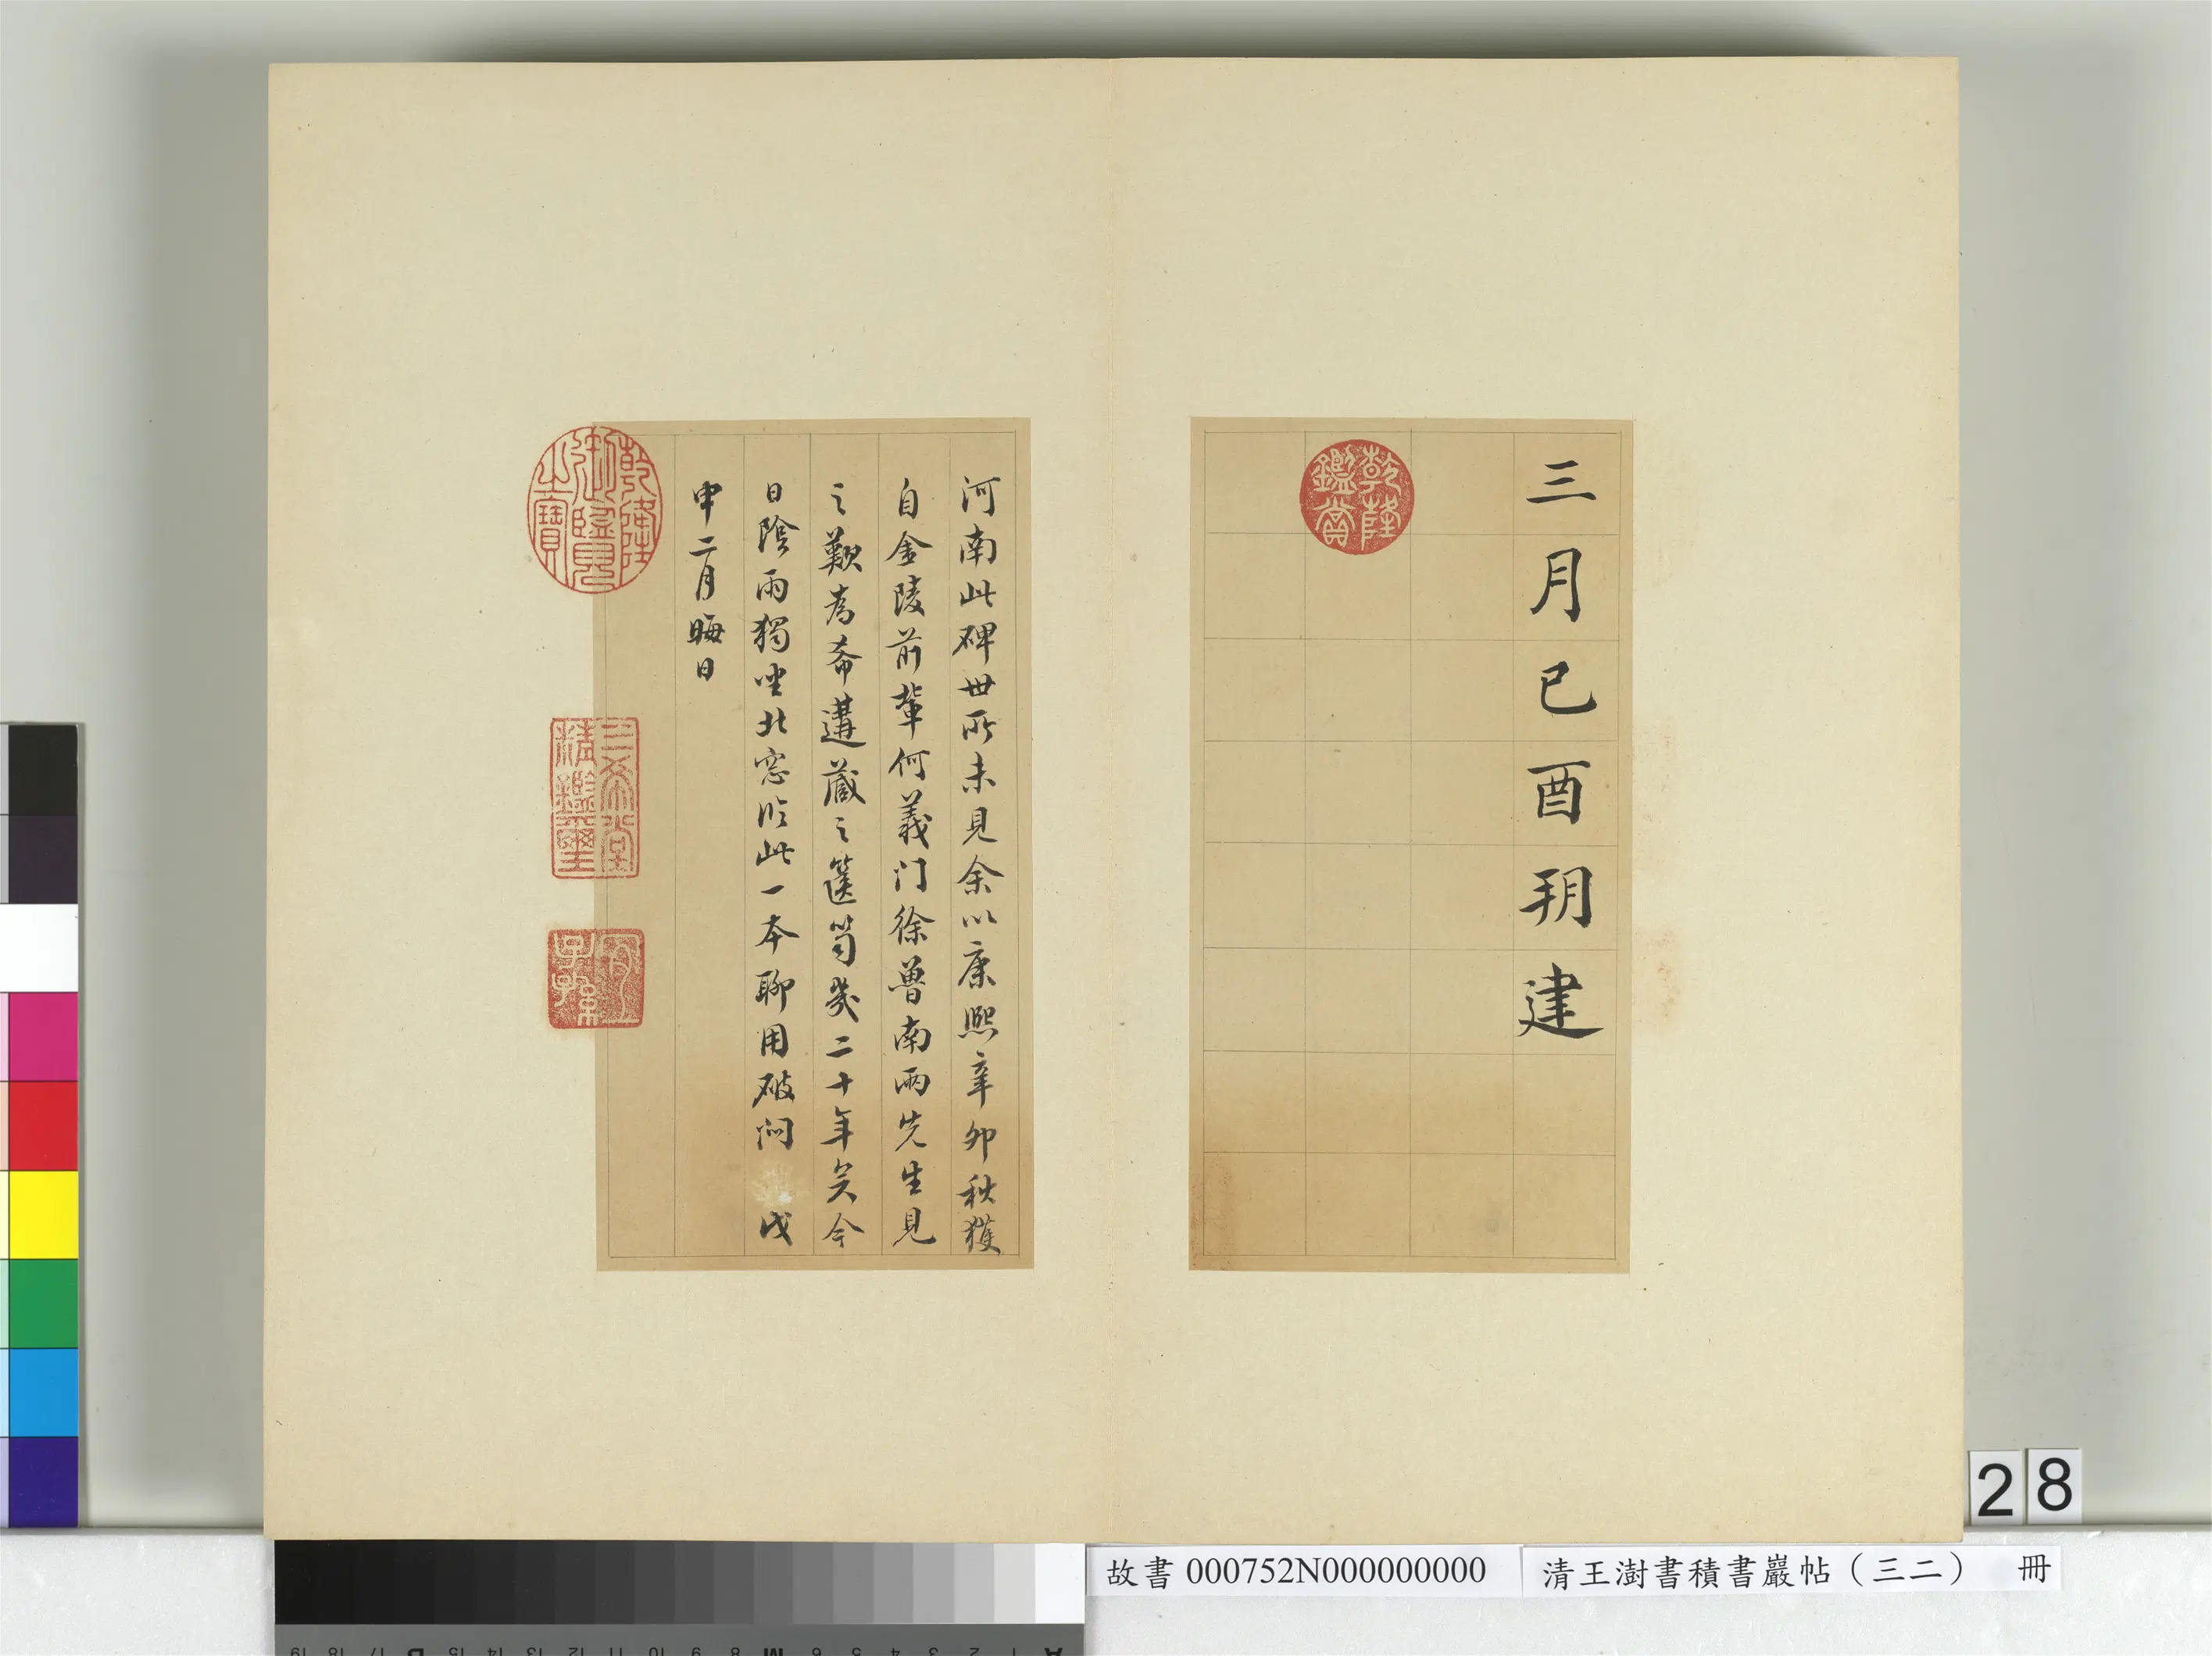 三月已酉玥建
乾隆
鑑賞
河南此碑世所未見余以康熙辛卯秋獲
自金陵前輩何義门徐曽南兩先生見
之歎為希遘蔵之篋笥幾二十年矣今
日陰雨獨坐北窓臨此一本聊用破悶 戊
申二月晦日
乾隆
御覽
之寶
三希堂
精鑑璽
宜
子孫
28
故書 000752N000000000
清王澍書積書巖帖（三二） 冊